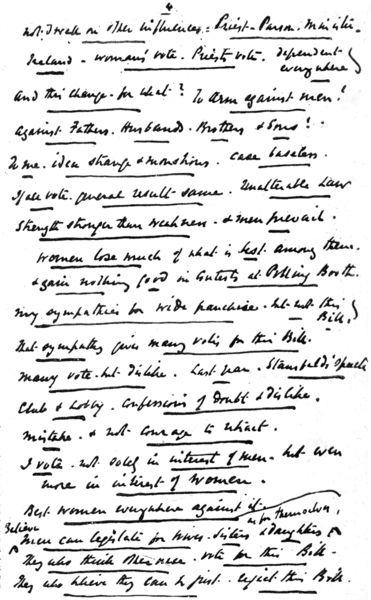 4.
not dwell on other influences. Priest. Parson. Minister.
Ireland - woman's vote. Priests vote. dependent everywhere
and this change - for what? To arm against men!
against Fathers. Husbands. Brothers & Sons!
To me. idea strange & monstrous. case baseless.
If all vote. general result same. Unalterable Law
Strength stronger than weakness. & men prevail.
Women lose much of what is best among them.
& gain nothing good in Contests at Polling Booth.
my sympathies for wide franchise. but not this Bill.
that sympathy gives many votes for this Bill.
many vote. but dislike. Last year. Stansfeld's speech
Club & Lobby. Confessions of Doubt & dislike.
mistake. & not courage to retract.
I vote. not solely in interest of men. but even
more in interest of women.
Best women everywhere against it.
Believe men can legislate for Wives. Sisters & Daughters as for themselves,
They who think otherwise. vote for this Bill.
They who believe they can be just. reject this Bill.